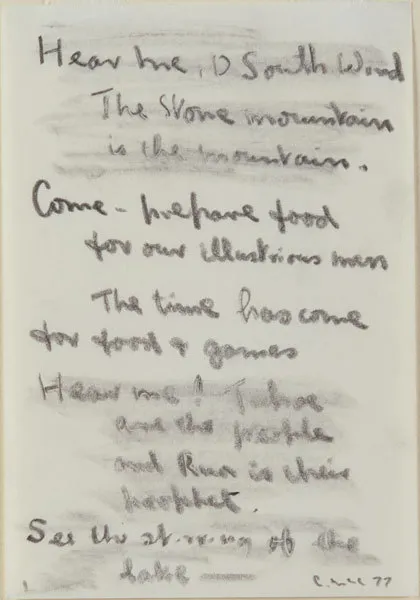 Hear me, O South Wind
The Stone mountain
is the mountain.
Come - prepare food
for our illustrious men
The time has come
for food & games
Hear me! Tuhoe
are the people
and Rua is their
prophet.
See the of the
lake — C. McC 77